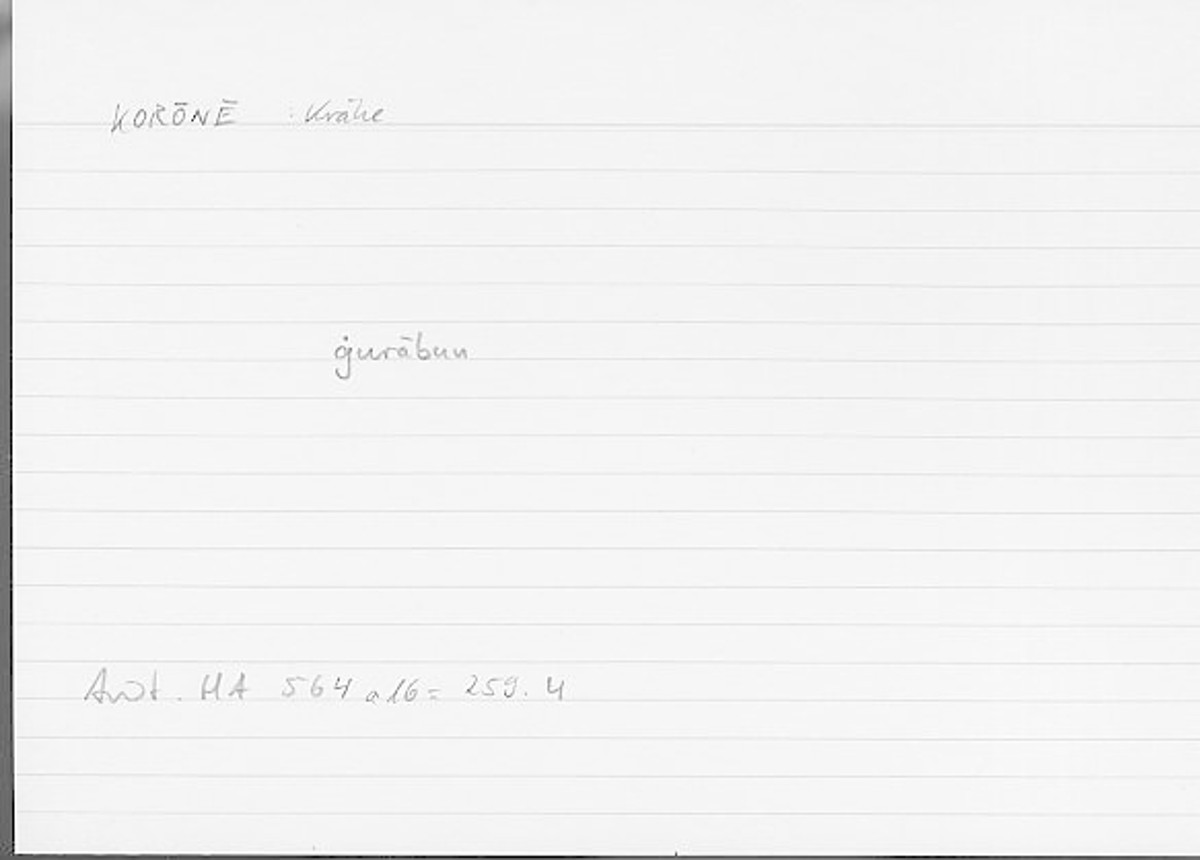 KORŌNĒ : Krähe
ġurābun
Arist. HA 564 a 16 = 259. 4